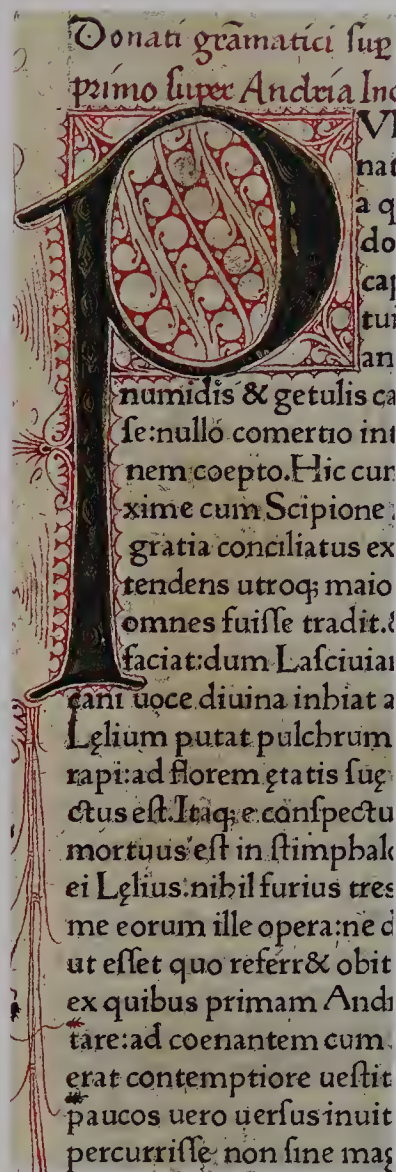 Donati grāmatici sup̱
primo super Andria Inc
P
VB
nat
a q
do
cap
tui
an
numidis & getulis ca
ſe:nullo comertio int
nem coepto.Hic cur
xime cum Scipione
gratia conciliatus ex
tendens utroq; maio
omnes fuiſſe tradit.&
faciat:dum Laſciuiai
cani uoce diuina inhiat a
Lęlium putat pulchrum
rapi:ad florem ętatis ſuę
ctus eſt.Itaq; e conſpectu
mortuus eſt in ſtimphalo
ei Lęlius:nihil furius tres
me eorum ille opera:ne d
ut eſſet quo referr& obit
ex quibus primam Andr
tare:ad coenantem cum
erat contemptiore ueſtit
paucos uero uerſus inuit
percurriſſe non ſine mag